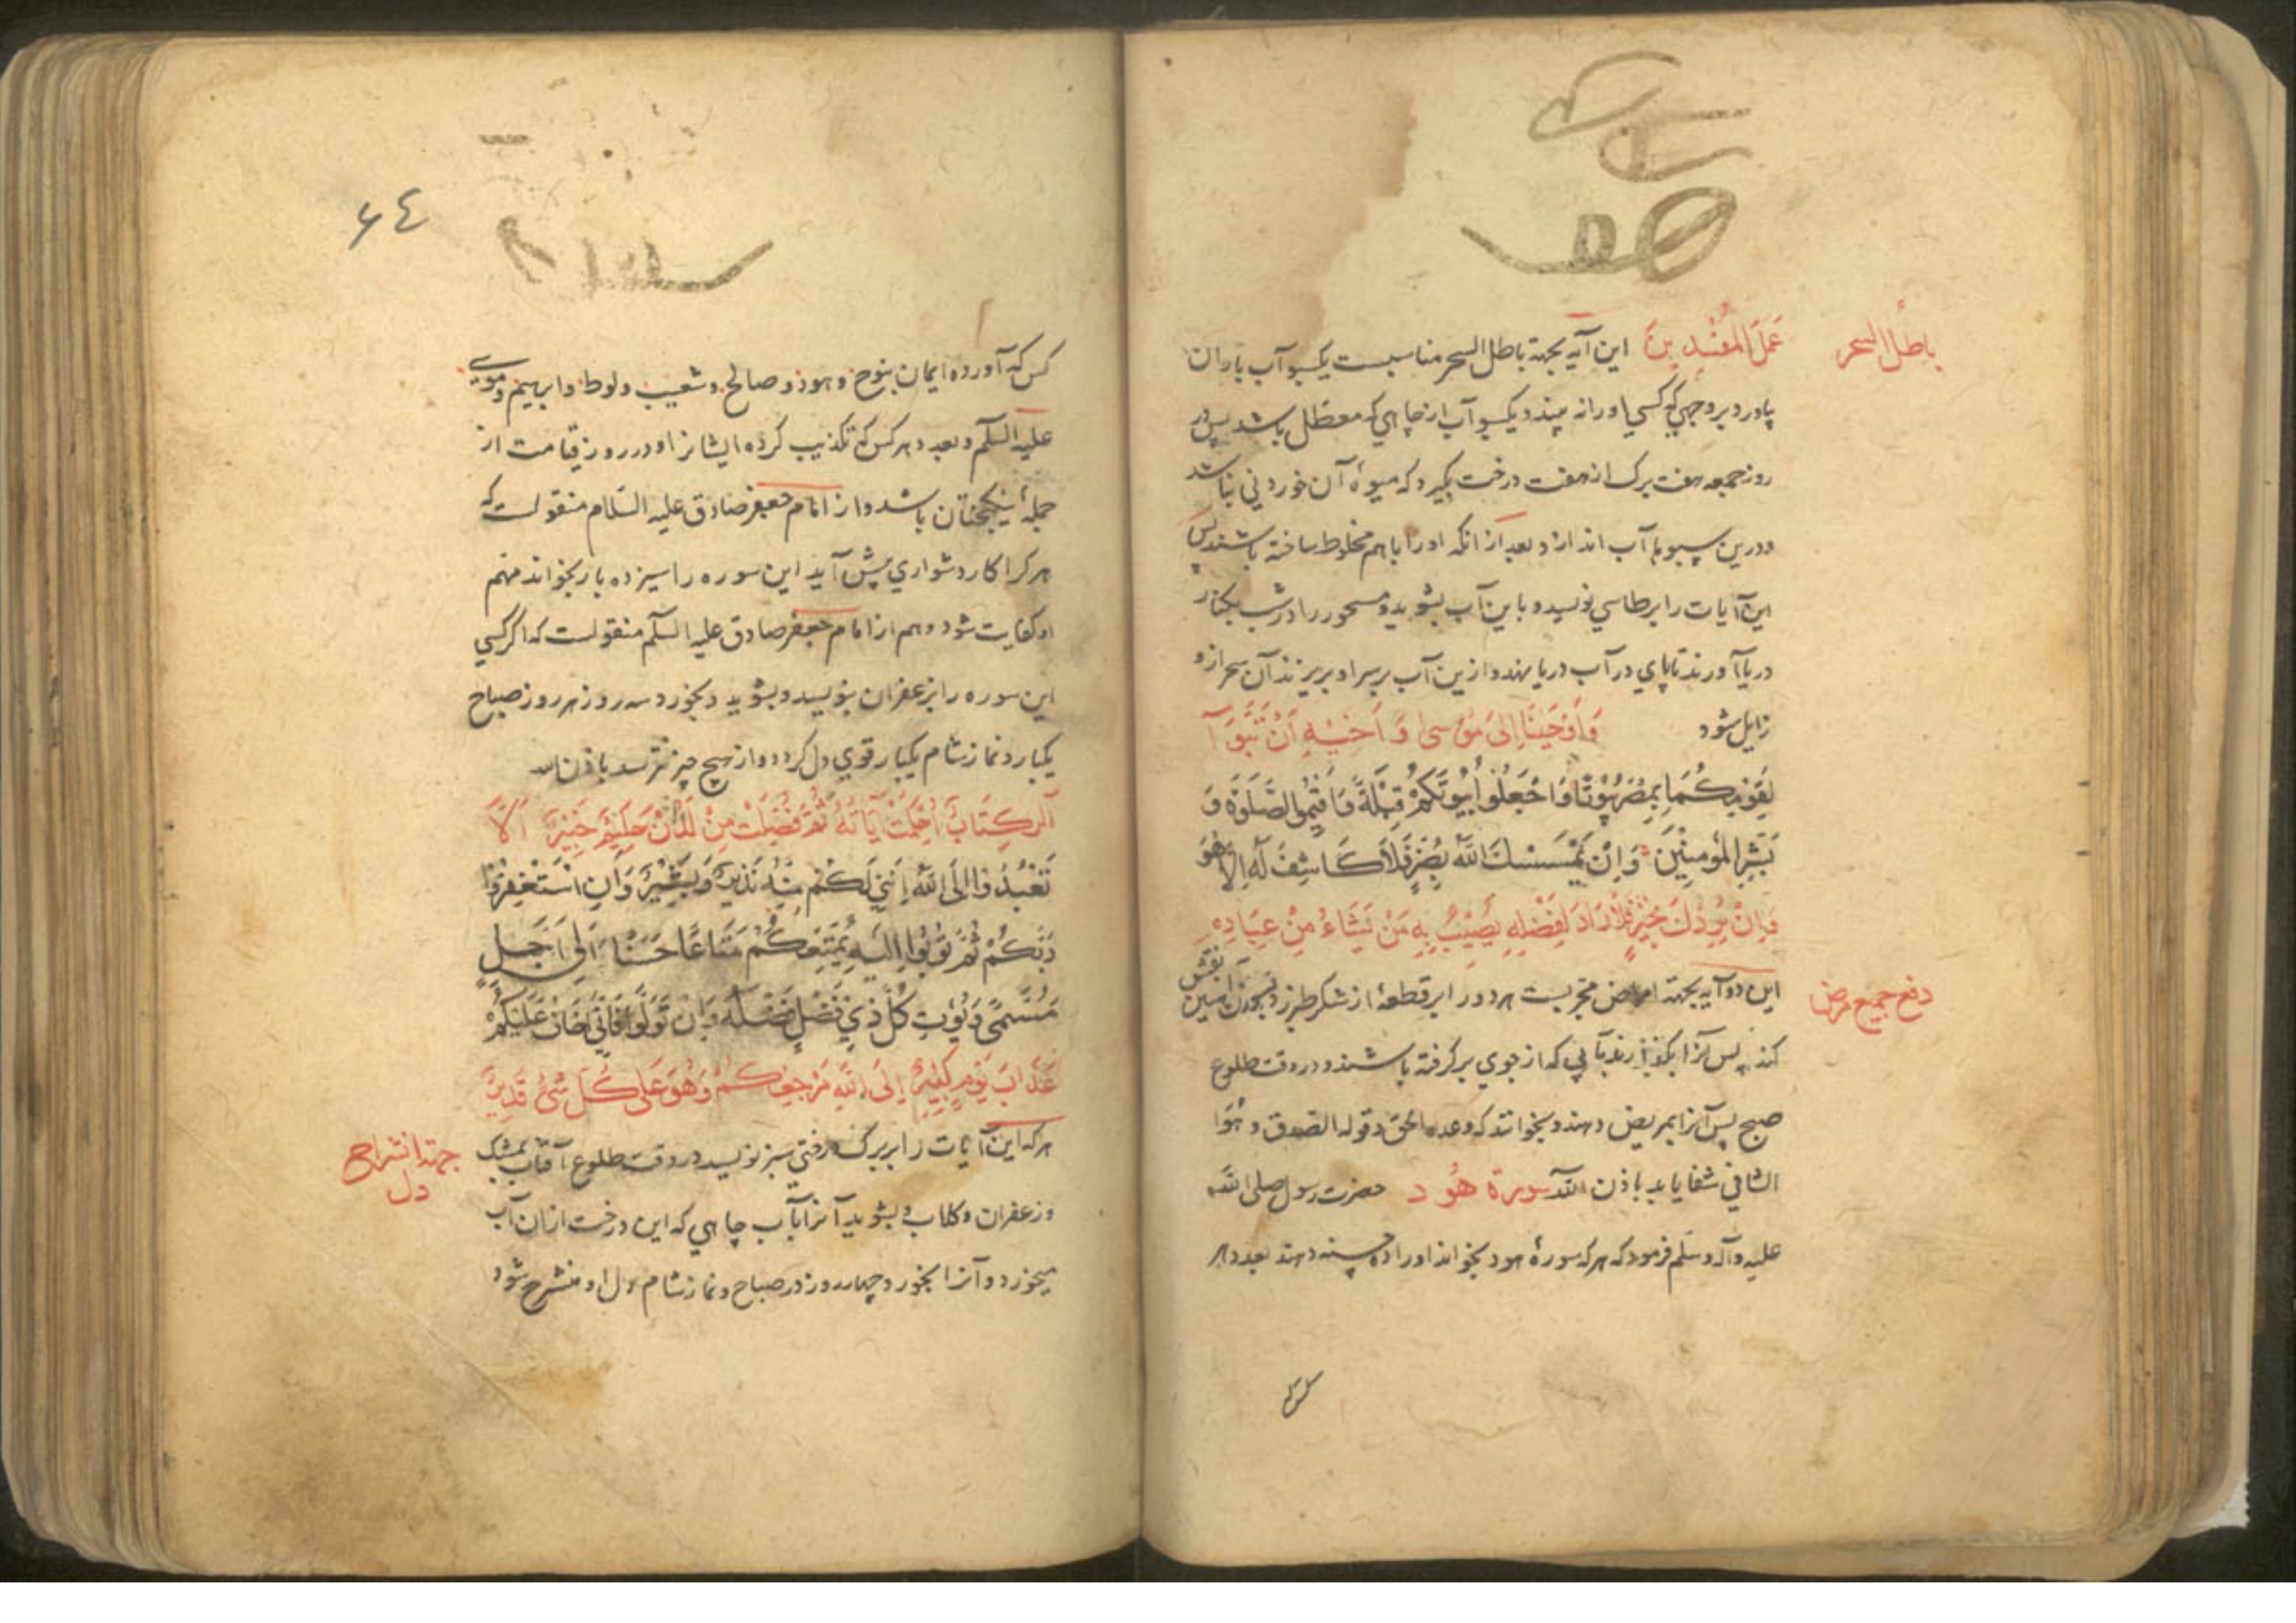 باطل السحر
عَمَلَ المُفْسِدِينَ این آیه بجهة باطل السحر مناسبست یکسبو آب باران
بیاورد بر وجهی که کسی اورا نه بیند و یکسبو آب از چاهی که معطّل باشد پس در
روز جمعه هفت برک از هفت درخت بگیرد که میوهٔ آن خوردنی نباشد
و درین سبوها آب اندازد و بعد از انکه اورا باهم مخلوط ساخته باشند پس
این آیات را بر طاسی نویسد و باین آب بشوید و مسحور را در شب بکنار
دریا آورند تا پای در آب دریا نهد و ازین آب بر سر او بریزند آن سحر ازو
زایل شود وَأَوْحَيْنَا إِلَى مُوسَى وَأَخِيهِ أَنْ تَبَوَّآ
لِقَوْمِكُمَا بِمِصْرَ بُيُوتًا وَاجْعَلُوا بُيُوتَكُمْ قِبْلَةً وَأَقِيمُوا الصَّلَوةَ وَ
بَشِّرِ المُؤْمِنِينَ وَإِنْ يَمْسَسْكَ اللَّهُ بِضُرٍّ فَلَا كَاشِفَ لَهُ إِلَّا هُوَ
وَإِنْ يُرِدْكَ بِخَيْرٍ فَلَا رَادَّ لِفَضْلِهِ يُصِيبُ بِهِ مَنْ يَشَاءُ مِنْ عِبَادِهِ
دفع جمیع مرض
این دو آیه بجهة امراض مجربست هر دو را بر قطعهٔ از شکر طبرزد بسوزن آهنین نقش
کند پس آنرا بکدازند بآبی که از جوی بر گرفته باشند و در وقت طلوع
صبح پس آنرا بمریض دهند و بخوانند که وعده الحق و قوله الصدق و هُوَ
الشافی شفا یابد باذن اللّه سورة هُود حضرت رسول صلی اللّه
علیه وآله وسلّم فرمود که هر که سورهٔ هود بخواند اورا ده حسنه دهند بعدد هر
کس
٦٤
کس که آورده ایمان بنوح و هود و صالح و شعیب و لوط و ابرهیم و موسی
علیه السلّم و بعدد هر کس که تکذیب کرده ایشانرا و در روز قیامت از
جملهٔ نیکبختان باشد و از امام جعفر صادق علیه السّلام منقولست که
هر کرا کار دشواری پیش آید این سوره را سیزده بار بخواند مهمّ
او کفایت شود و هم از امام جعفر صادق علیه السلّم منقولست که اگر کسی
این سوره را بزعفران بنویسد و بشوید و بخورد سه روز هر روز صباح
یکبار و نماز شام یکبار قوی دل گردد و از هیچ چیز نترسد باذن الله
الر كِتَابٌ أُحْكِمَتْ آيَاتُهُ ثُمَّ فُصِّلَتْ مِنْ لَدُنْ حَكِيمٍ خَبِيرٍ أَلَّا
تَعْبُدُوا إِلَّا اللَّهَ إِنَّنِي لَكُمْ مِنْهُ نَذِيرٌ وَبَشِيرٌ وَأَنِ اسْتَغْفِرُوا
رَبَّكُمْ ثُمَّ تُوبُوا إِلَيْهِ يُمَتِّعْكُمْ مَتَاعًا حَسَنًا إِلَى أَجَلٍ
مُسَمًّى وَيُؤْتِ كُلَّ ذِي فَضْلٍ فَضْلَهُ وَإِنْ تَوَلَّوْا فَإِنِّي أَخَافُ عَلَيْكُمْ
عَذَابَ يَوْمٍ كَبِيرٍ إِلَى اللَّهِ مَرْجِعُكُمْ وَهُوَ عَلَى كُلِّ شَيْءٍ قَدِيرٌ
جهتة انشراح
دل
هر که این آیات را بر برک درختی سبز نویسد در وقت طلوع آفتاب بمشک
و زعفران و کلاب و بشوید آنرا بآب چاهی که این درخت ازان آب
میخورد و آنرا بخورد چهار روز در صباح و نماز شام دل او منشرح شود